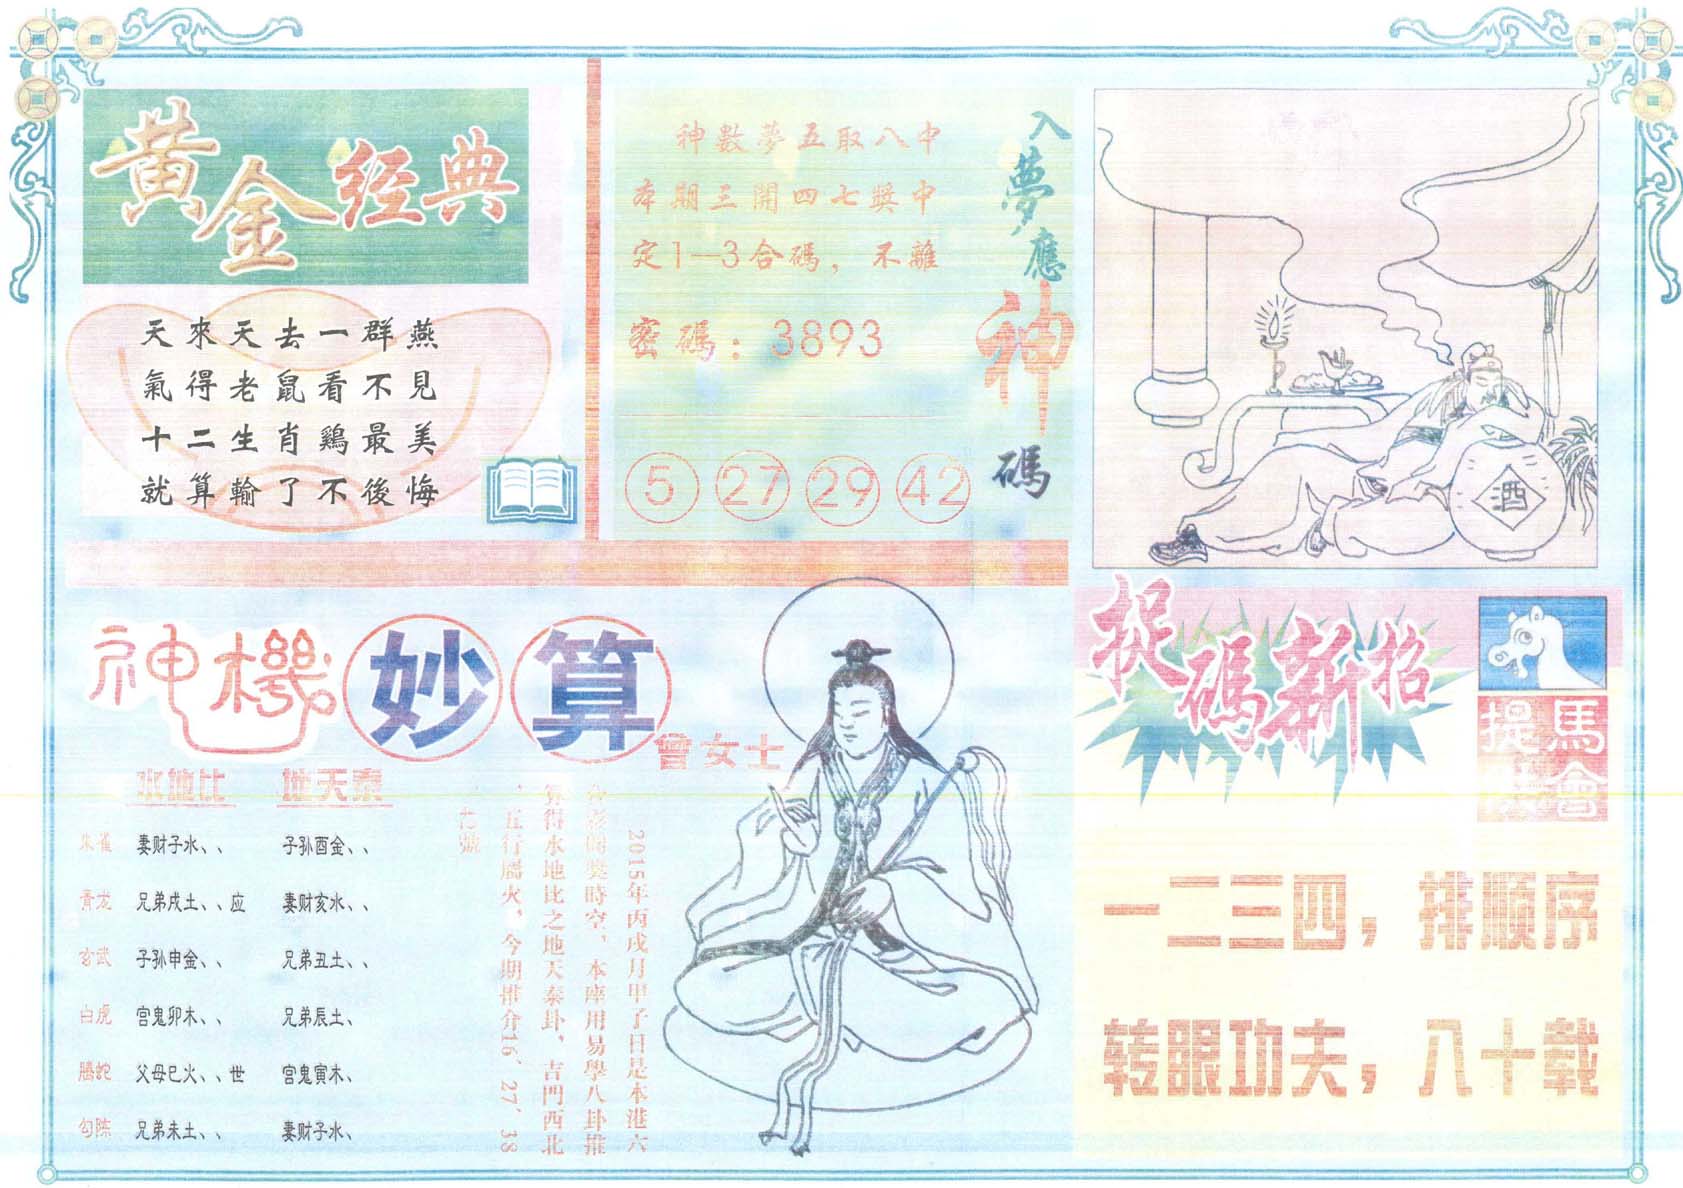 黄金经典
天來天去一群燕
氣得老鼠看不見
十二生肖鷄最美
就算輸了不後悔
入夢應神碼
神數夢五取八中
本期三開四七獎中
定1—3合碼，不離
密碼：3893
5 27 29 42
酒
神機妙算
曾女士
水地比 地天泰
朱雀 妻财子水、、 子孙酉金、、
青龙 兄弟戌土、、应 妻财亥水、、
玄武 子孙申金、、 兄弟丑土、、
白虎 官鬼卯木、、 兄弟辰土、
騰蛇 父母巳火、、世 官鬼寅木、
勾陈 兄弟未土、、 妻财子水、
2015年丙戌月甲子日是本港六
合彩開獎時空，本座用易學八卦推
算得水地比之地天泰卦，吉門西北
，五行屬火，今期推介16、27、38
捉碼新招
馬會
提
一二三四，排顺序
转眼功夫，八十载